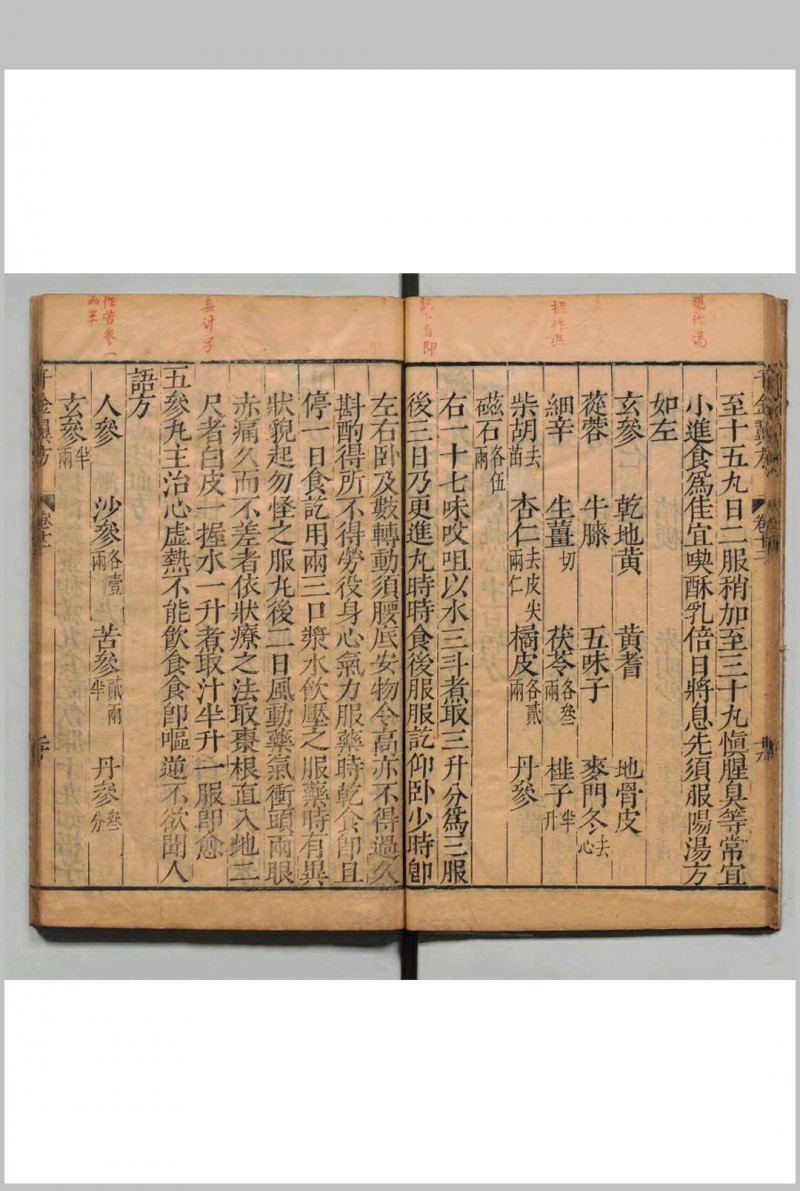 至十五丸日二服稍加至三十丸愼腥臭等常宜
小進食爲佳宜喫酥乳倍日將息先須服陽湯方
如左
玄參 乾地黃 黃耆 地骨皮
蓯蓉 牛膝 五味子 麥門冬去心
細辛 生薑切 茯苓各叁兩 桂子半升
柴胡去苗 杏仁去皮尖兩仁 橘皮各貳兩 丹參
磁石各伍兩
右一十七味㕮咀以水三斗煮取三升分爲三服
後三日乃更進丸時時食後服服訖仰卧少時卽
左右卧及數轉動須腰底安物令高亦不得過久
斟酌得所不得勞役身心氣力服藥時乾食卽且
停一日食訖用兩三口漿水飮壓之服藥時有異
狀貌起勿怪之服丸後二日風動藥氣衝頭兩眼
赤痛久而不差者依狀療之法取棗根直入地二
尺者白皮一握水一升煮取汁半升一服卽愈
五參丸主治心虛熱不能飮食食卽嘔逆不欲聞人
語方
人參 沙參各壹兩 苦參貳兩半 丹參叁分
玄參半兩
千金翼方 卷十二